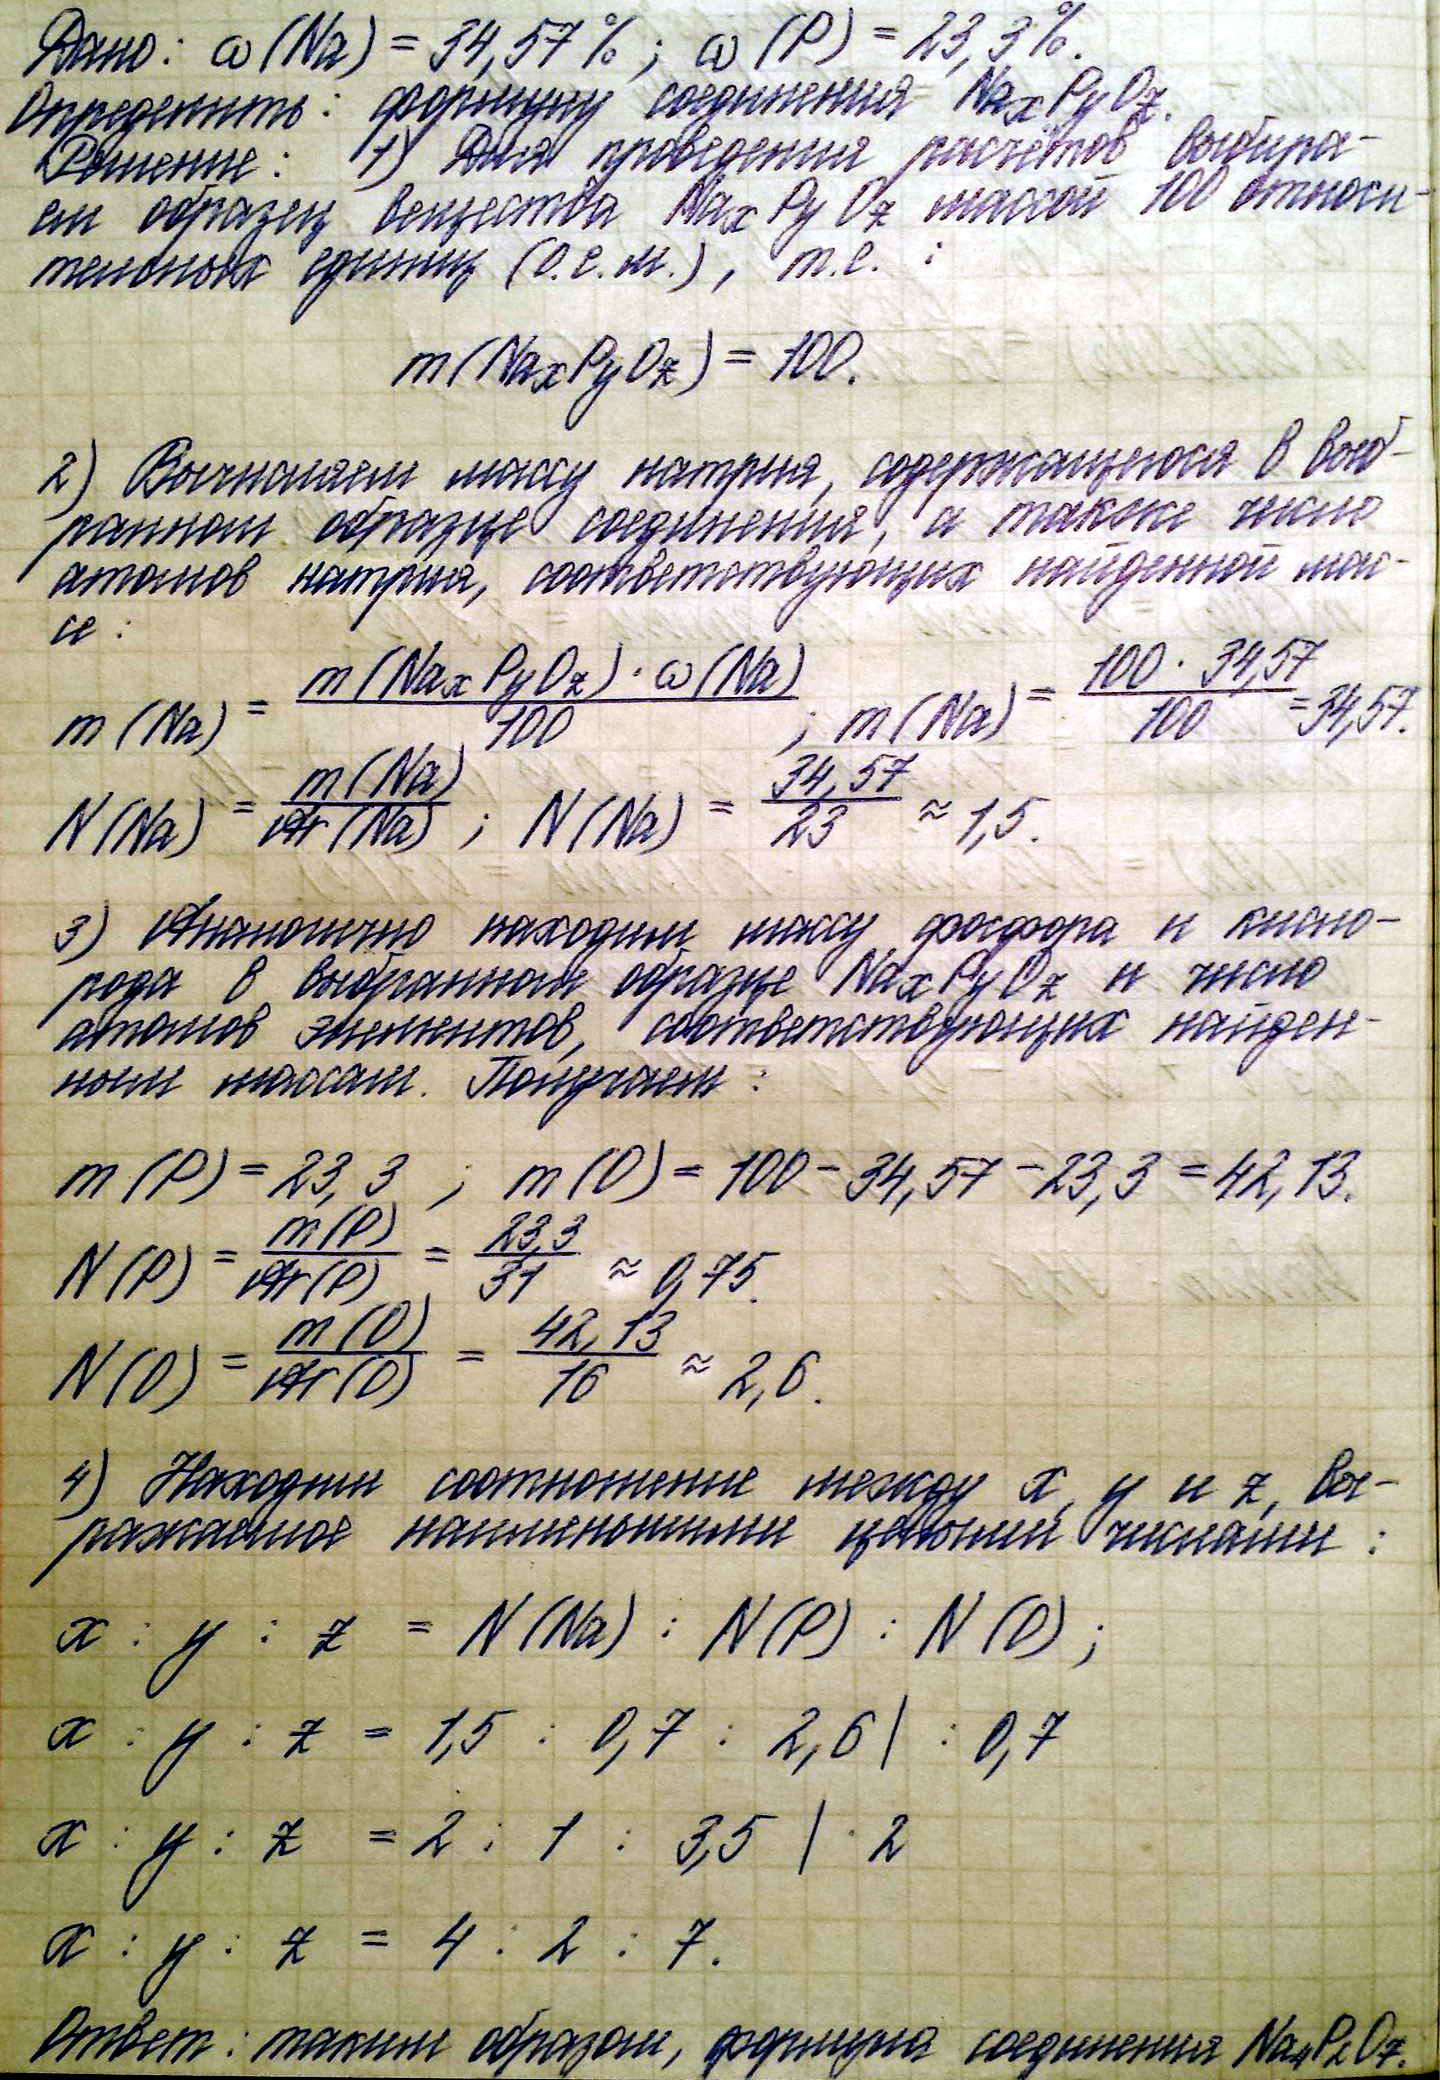 Дано: ω(Na) = 34,57%; ω(P) = 23,3%.
Определить: формулу соединения NaxPyOz.
Решение: 1) Для проведения расчётов выбира-
ем образец вещества NaxPyOz массой 100 относи-
тельных единиц (о.е.м.), т.е. :
m(NaxPyOz) = 100.
2) Вычисляем массу натрия, содержащегося в выб-
ранном образце соединения, а также число
атомов натрия, соответствующих найденной мас-
се :
m(Na) = m(NaxPyOz)·ω(Na)/100 ; m(Na) = 100·34,57/100 = 34,57.
N(Na) = m(Na)/Ar(Na) ; N(Na) = 34,57/23 ≈ 1,5.
3) Аналогично находим массу фосфора и кисло-
рода в выбранном образце NaxPyOz и число
атомов элементов, соответствующих найден-
ным массам. Получаем :
m(P) = 23,3 ; m(O) = 100 - 34,57 - 23,3 = 42,13.
N(P) = m(P)/Ar(P) = 23,3/31 ≈ 0,75.
N(O) = m(O)/Ar(O) = 42,13/16 ≈ 2,6.
4) Находим соотношение между x, y и z, вы-
ражаемое наименьшими целыми числами :
x : y : z = N(Na) : N(P) : N(O) ;
x : y : z = 1,5 : 0,7 : 2,6 | : 0,7
x : y : z = 2 : 1 : 3,5 | · 2
x : y : z = 4 : 2 : 7.
Ответ: таким образом, формула соединения Na4P2O7.